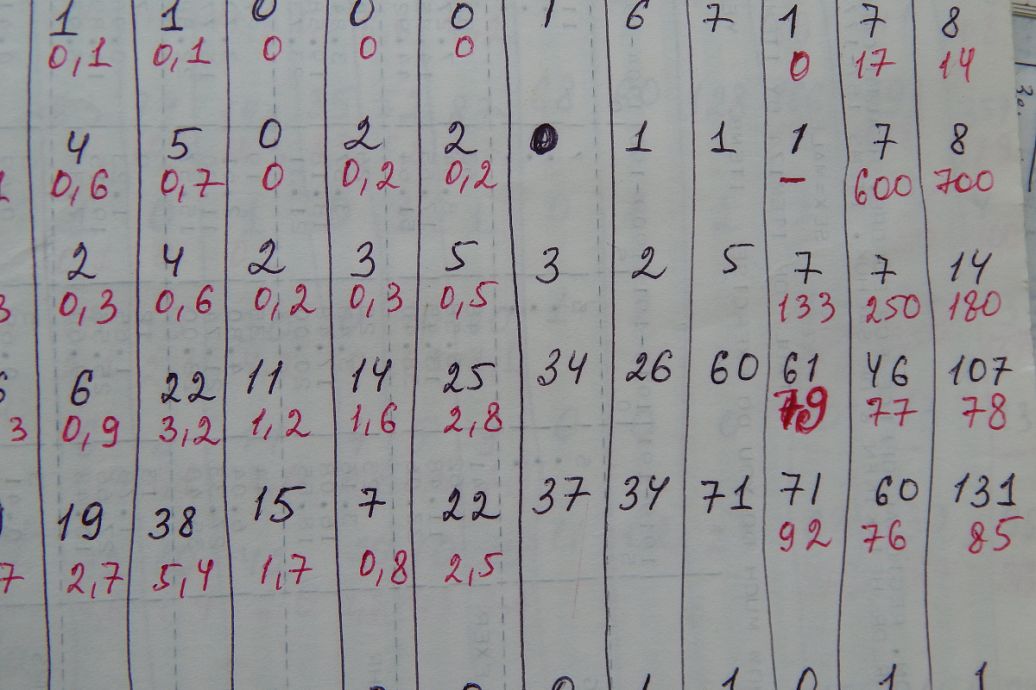 1 1 0 0 0 1 6 7 1 7 8
0,1 0,1 0 0 0 0 17 14
4 5 0 2 2 0 1 1 1 7 8
0,6 0,7 0 0,2 0,2 – 600 700
2 4 2 3 5 3 2 5 7 7 14
3 0,3 0,6 0,2 0,3 0,5 133 250 180
6 22 11 14 25 34 26 60 61 46 107
3 0,9 3,2 1,2 1,6 2,8 79 77 78
19 38 15 7 22 37 34 71 71 60 131
92 76 85
7 2,7 5,4 1,7 0,8 2,5